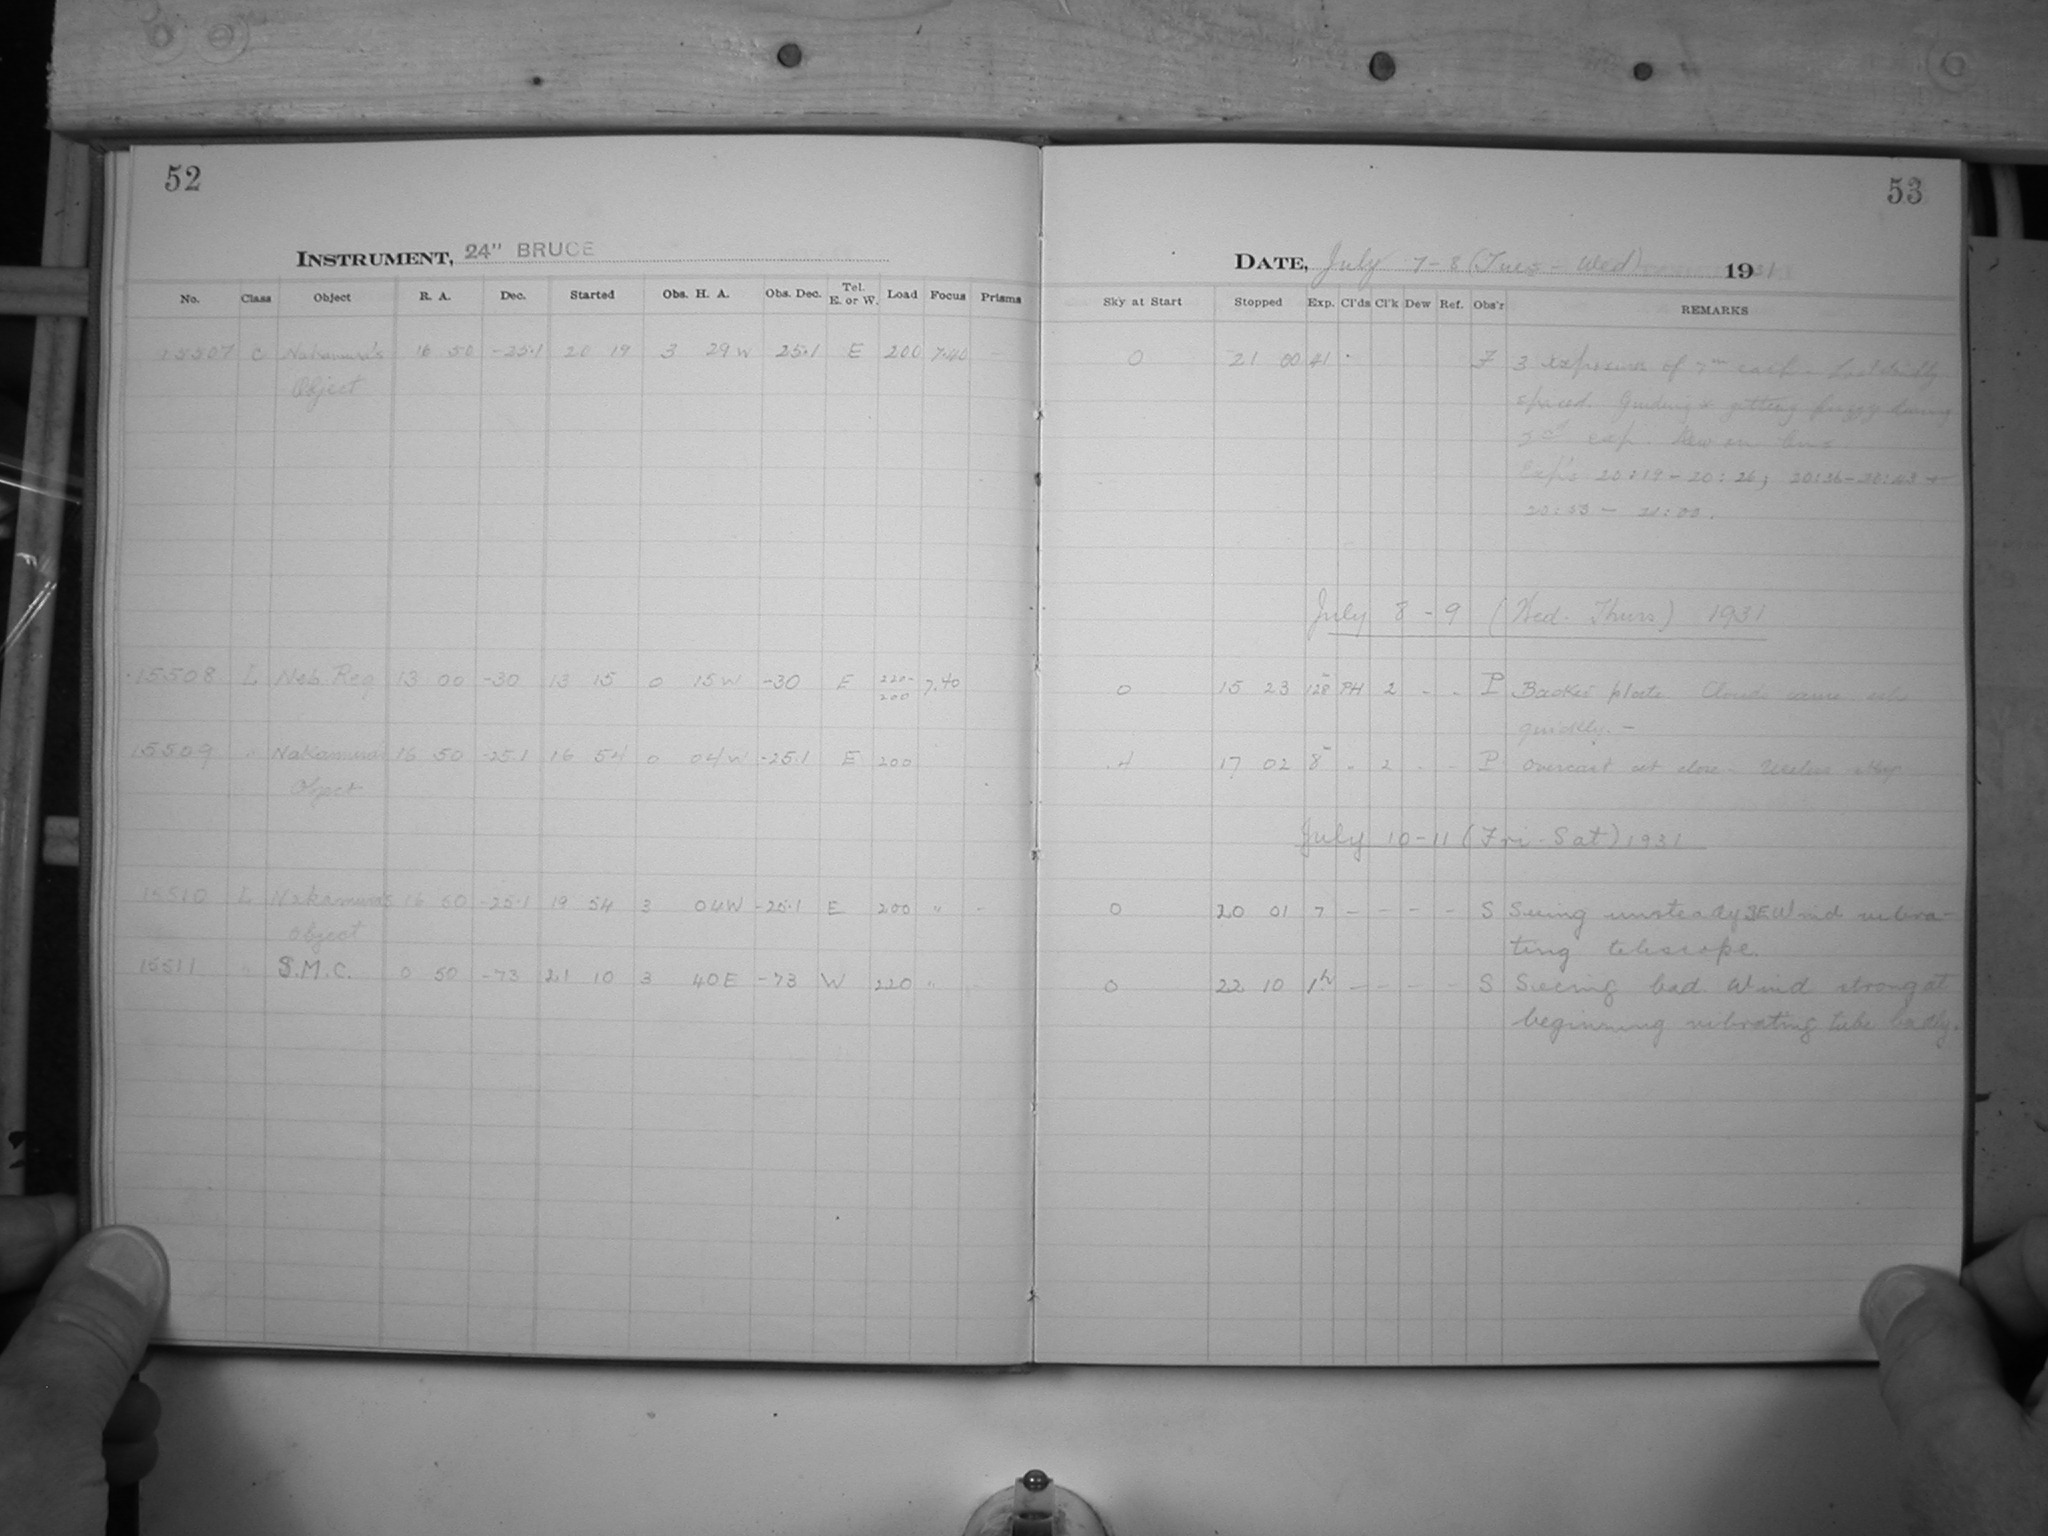 52
INSTRUMENT, 24" BRUCE
No. Class Object R. A. Dec. Started Obs. H. A. Obs. Dec. Tel. E. or W. Load Focus Prisms
15507 C Nakamura's 16 50 -25.1 20 19 3 29W 25.1 E 200 7.40 -
Object
15508 L Neb. Reg 13 00 -30 13 15 0 15W -30 E 220- 7.40
200
15509 " Nakamura's 16 50 -25.1 16 54 0 04W -25.1 E 200
Object
15510 L Nakamura's 16 50 -25.1 19 54 3 04W -25.1 E 200 " -
Object
15511 " S.M.C. 0 50 -73 21 10 3 40E -73 W 220 "
53
DATE, July 7-8 (Tues - Wed) 1931
Sky at Start Stopped Exp. Cl'ds Cl'k Dew Ref. Obs'r REMARKS
0 21 00 41 F 3 exposures of 7m each -
spaced. Guiding * getting fuzzy during
3rd exp. Dew on
Exp's 20:19-20:26; 20:36-20:43 +
20:53 - 21:00.
July 8-9 (Wed. Thurs) 1931
0 15 23 128 PH 2 - - P Backed plate. Clouds came
quickly. -
.4 17 02 8 " 2 - - P Overcast at close.
July 10-11 (Fri-Sat) 1931
0 20 01 7 - - - - S Seeing unsteady SE Wind vibra-
ting telescope.
0 22 10 1h - - - - S Seeing bad. Wind strong at
beginning vibrating tube badly.